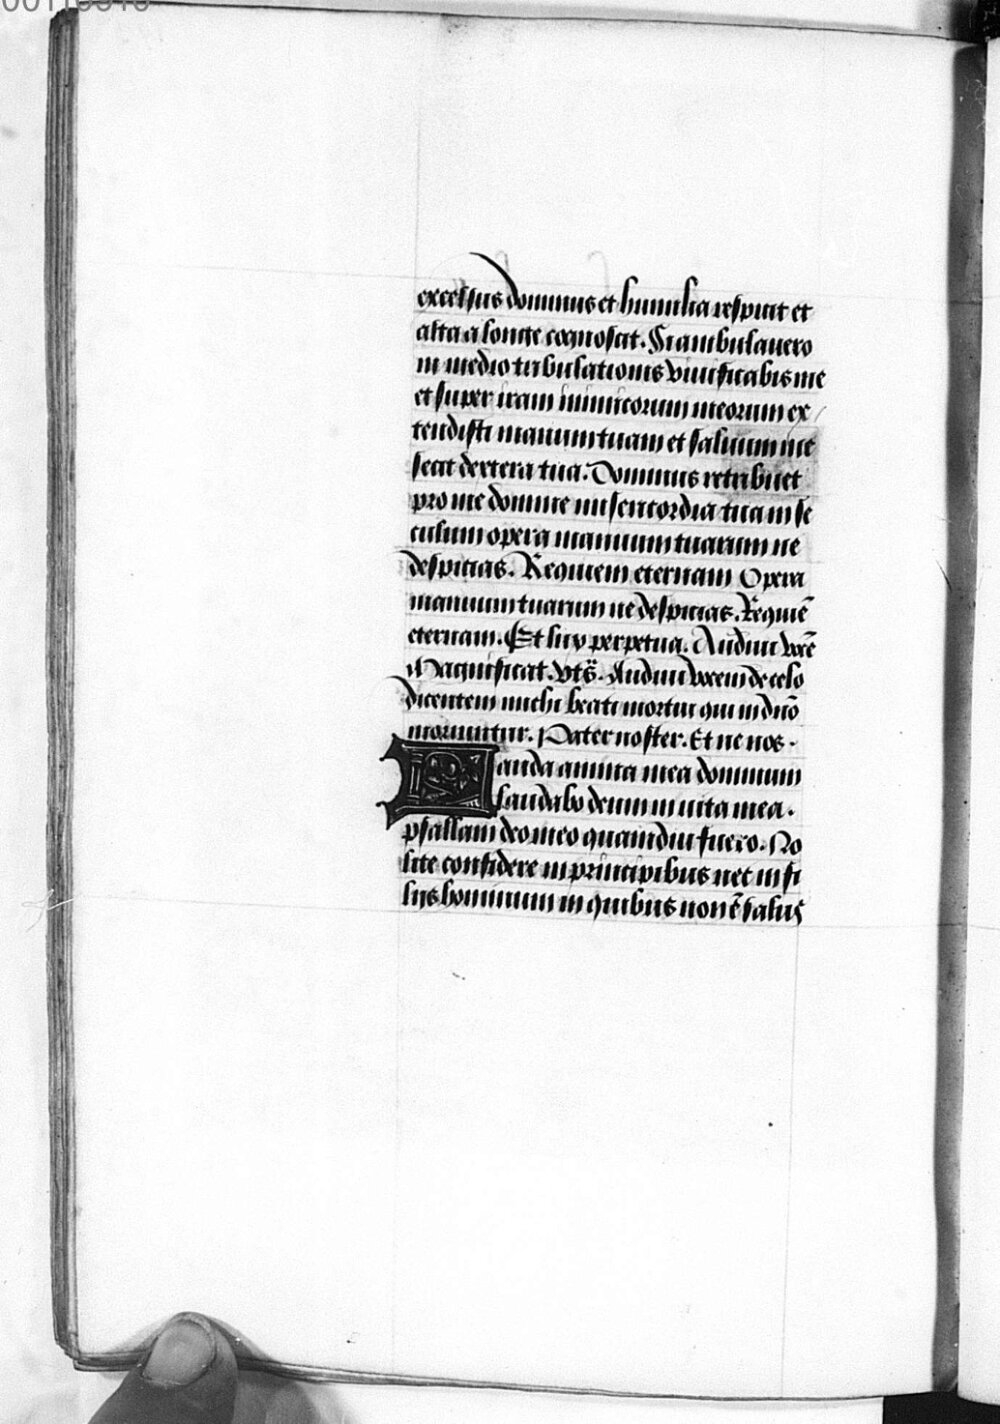 excelsus dominus et humilia respicit et
alta a longe cognoscit. Si ambulavero
in medio tribulationis vivificabis me
et super iram inimicorum meorum ex
tendisti manum tuam et salvum me
fecit dextera tua. Dominus retribuet
pro me domine misericordia tua in se
culum opera manuum tuarum ne
despicias. Requiem eternam Opera
manuum tuarum ne despicias. Requiē
eternam. Et lux perpetua. Audivi vocē
Magnificat. Audivi vocem de celo
dicentem michi beati mortui qui in dnō
moriuntur. Pater noster. Et ne nos.
Lauda anima mea dominum
laudabo deum in vita mea.
psallam deo meo quamdiu fuero. No
lite confidere in principibus nec in fi
lijs hominum in quibus non ē salus